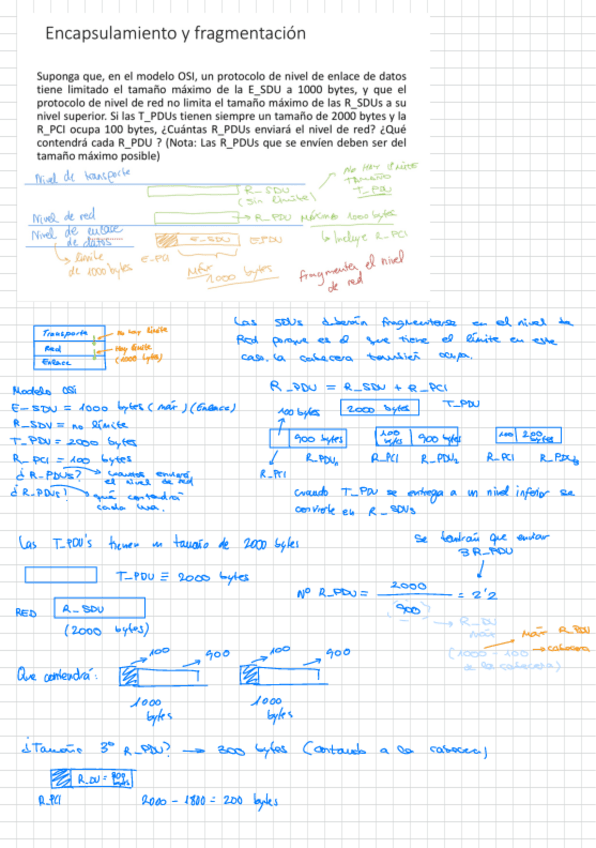 Encapsulamiento y fragmentación
Suponga que, en el modelo OSI, un protocolo de nivel de enlace de datos
tiene limitado el tamaño máximo de la E_SDU a 1000 bytes, y que el
protocolo de nivel de red no limita el tamaño máximo de las R_SDUs a su
nivel superior. Si las T_PDUs tienen siempre un tamaño de 2000 bytes y la
R_PCI ocupa 100 bytes, ¿Cuántas R_PDUs enviará el nivel de red? ¿Qué
contendrá cada R_PDU ? (Nota: Las R_PDUs que se envíen deben ser del
tamaño máximo posible)
Nivel de transporte
R_SDU
(sin límite)
no hay límite
tamaño
T_PDU
Nivel de red
R_PDU máximo 1000 bytes
↳ Incluye R_PCI
Nivel de enlace
de datos
E_SDU
EPDU
↳ límite
de 1000 bytes
E_PCI
Máx
1000 bytes
fragmenta el nivel
de red
Transporte
Red
Enlace
no hay límite
Hay límite
(1000 bytes)
Las SDUs deberán fragmentarse en el nivel de
Red porque es el que tiene el límite en este
caso. la cabecera también ocupa.
Modelo OSI
E_SDU = 1000 bytes (máx) (Enlace)
R_SDU = no límite
T_PDU = 2000 bytes
R_PCI = 100 bytes
¿R_PDUs? → cuantas enviará
el nivel de red
¿R_PDUs? → qué contendrá
cada una.
R_PDU = R_SDU + R_PCI
100 bytes
2000 bytes
T_PDU
900 bytes
100 bytes
900 bytes
100
200 bytes
R_PDU1
R_PCI
R_PDU2
R_PCI
R_PDU3
R_PCI
cuando T_PDU se entrega a un nivel inferior se
convierte en R_SDUs
Las T_PDU's tienen un tamaño de 2000 bytes
T_PDU ≡ 2000 bytes
Se tendrán que enviar
3 R_PDU
Nº R_PDU = 2000 / 900 = 2'2
RED
R_SDU
(2000 bytes)
máx
Máx R_PDU
(1000 - 100 → cabecera
de la cabecera)
Que contendrá:
100
900
100
900
1000
bytes
1000
bytes
¿Tamaño 3º R_PDU? → 300 bytes (contando a la cabecera)
R_PCI
2000 - 1800 = 200 bytes